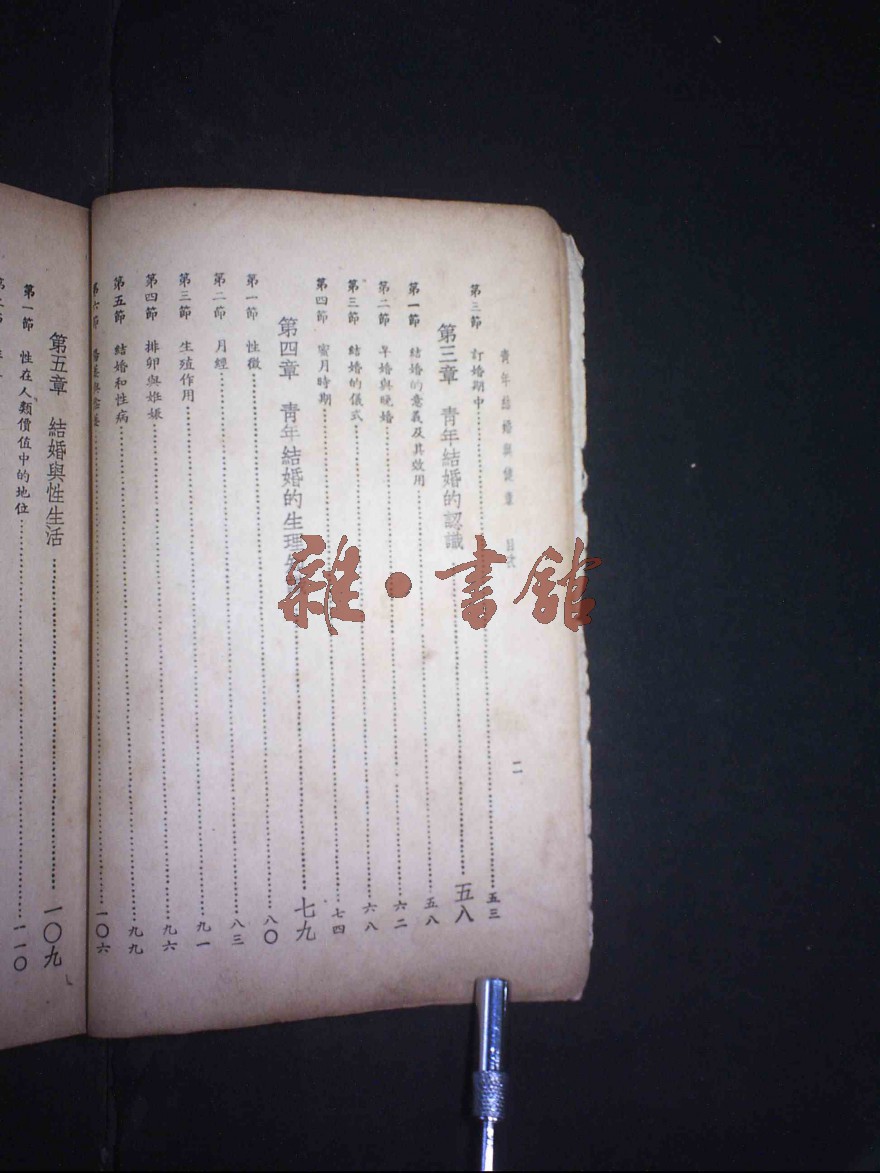 青年結婚與健康 目次 二
第三節 訂婚期中 五三
第三章 青年結婚的認識 五八
第一節 結婚的意義及其效用 五八
第二節 早婚與晚婚 六二
第三節 結婚的儀式 六八
第四節 蜜月時期 七四
第四章 青年結婚的生理 七九
第一節 性徵 八〇
第二節 月經 八三
第三節 生殖作用 九一
第四節 排卵與姙娠 九六
第五節 結婚和性病 九九
第六節 一〇六
第五章 結婚與性生活 一〇九
第一節 性在人類價值中的地位 一一〇
雜·書館